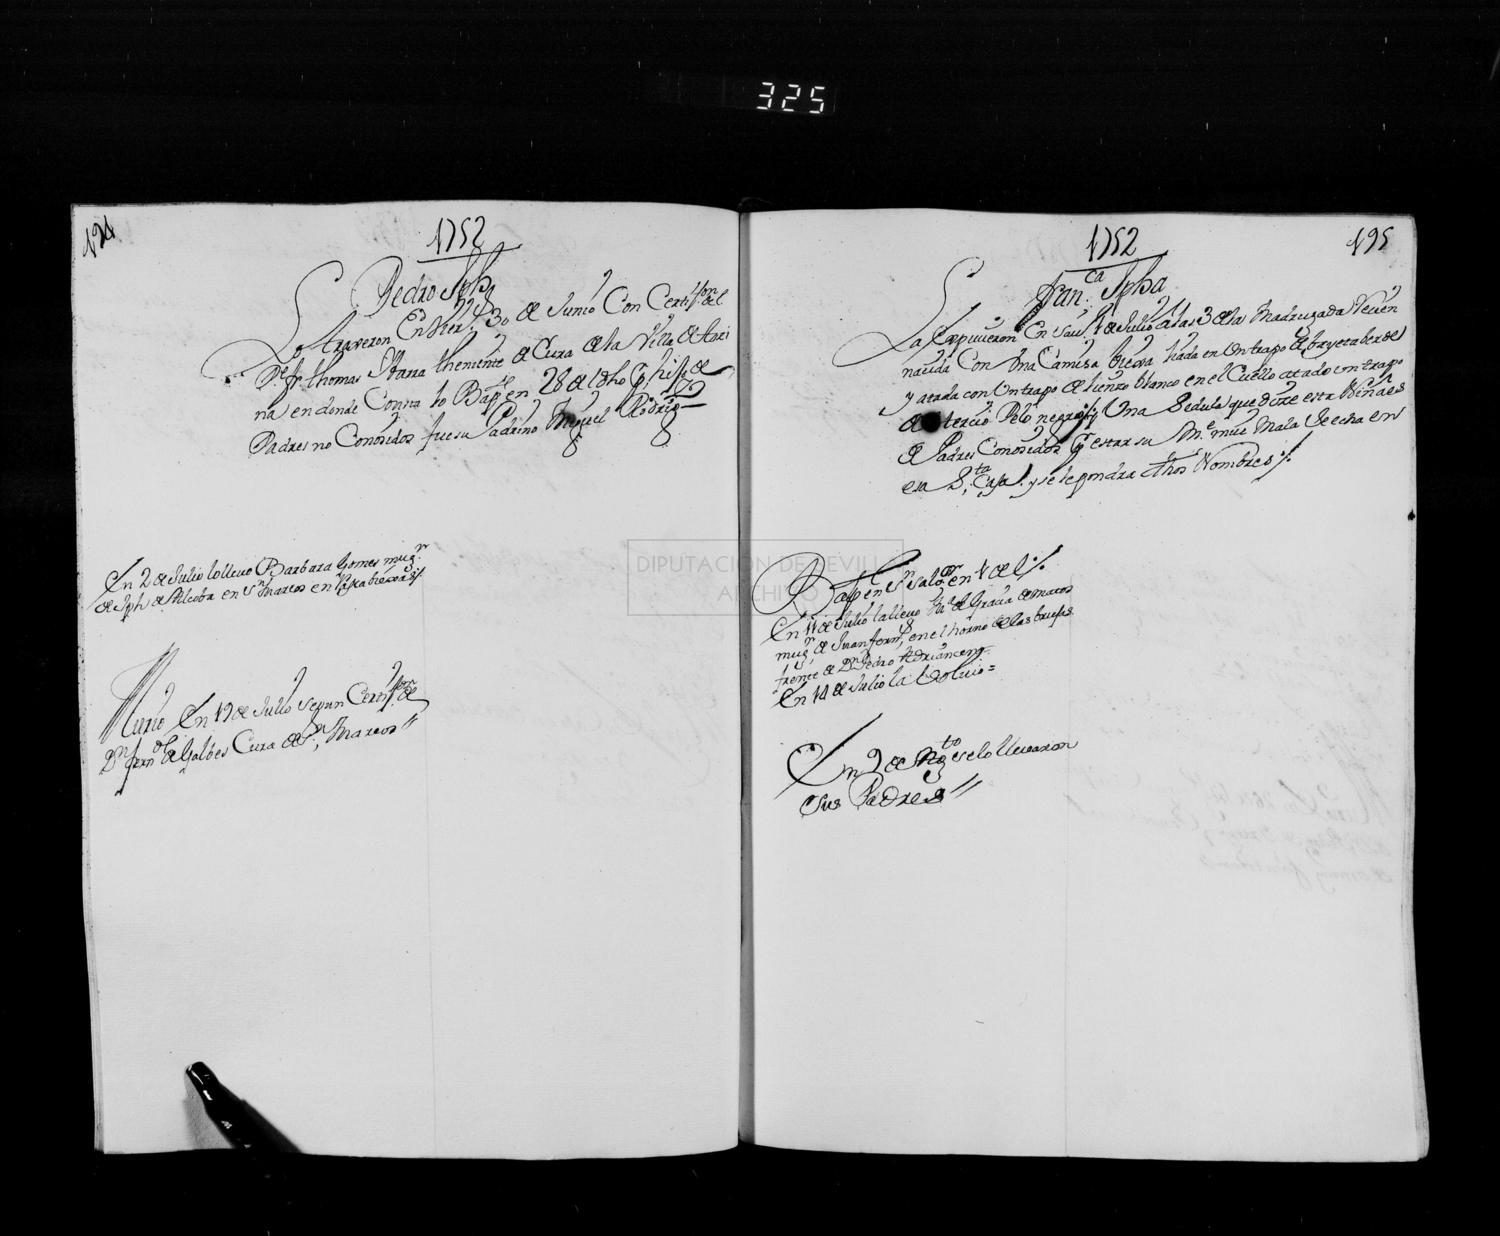 325
194
1752
Pedro Jph
Lo trageron En Vier.s 30 de Junio Con Certif.on del
D.e fr. Thomas Theniente de Cura de la Villa de
na en donde Consta lo Bap.e en 28 de dho p hijo de
Padres no Conosidos fue su Padrino Miguel Rodrig
En 2 de Julio lo llevo Barbara Gomes mug.r
de Jph de Alcoba en S.n Marcos en
Murio En 19 de Julio segun Certif.on de
D.n fern.do de Galbes Cura de S.n Marcos //
1752
195
Fran.ca Jpha
La Expusieron En Sav.o 1 de Julio a las 3 de la Madrugada Resien
nasida Con Una Camisa liada en Un trapo de bayeta berde
y atada con Un trapo de lienzo blanco en el Cuello atado Un trapo
de tersio Pelo negro y Una Sedula que dize esta Niña es
de Padres Conosidos p.r estar su M.e mui Mala Se echa en
esa S.ta Casa y se le pondra dhos Nombres
Bap.e en S.n Salv.or en 1 de
En 11 de Julio la llevo de Gracia de Matos
mug.r de Juan fern.s en el horno de las brujas
frente de D.n Pedro Adrian
En 14 de Julio la bolvio =
En 2 de Ag.to se lo llevaron
Sus Padres //
DIPUTACIÓN DE SEVILLA
ARCHIVO